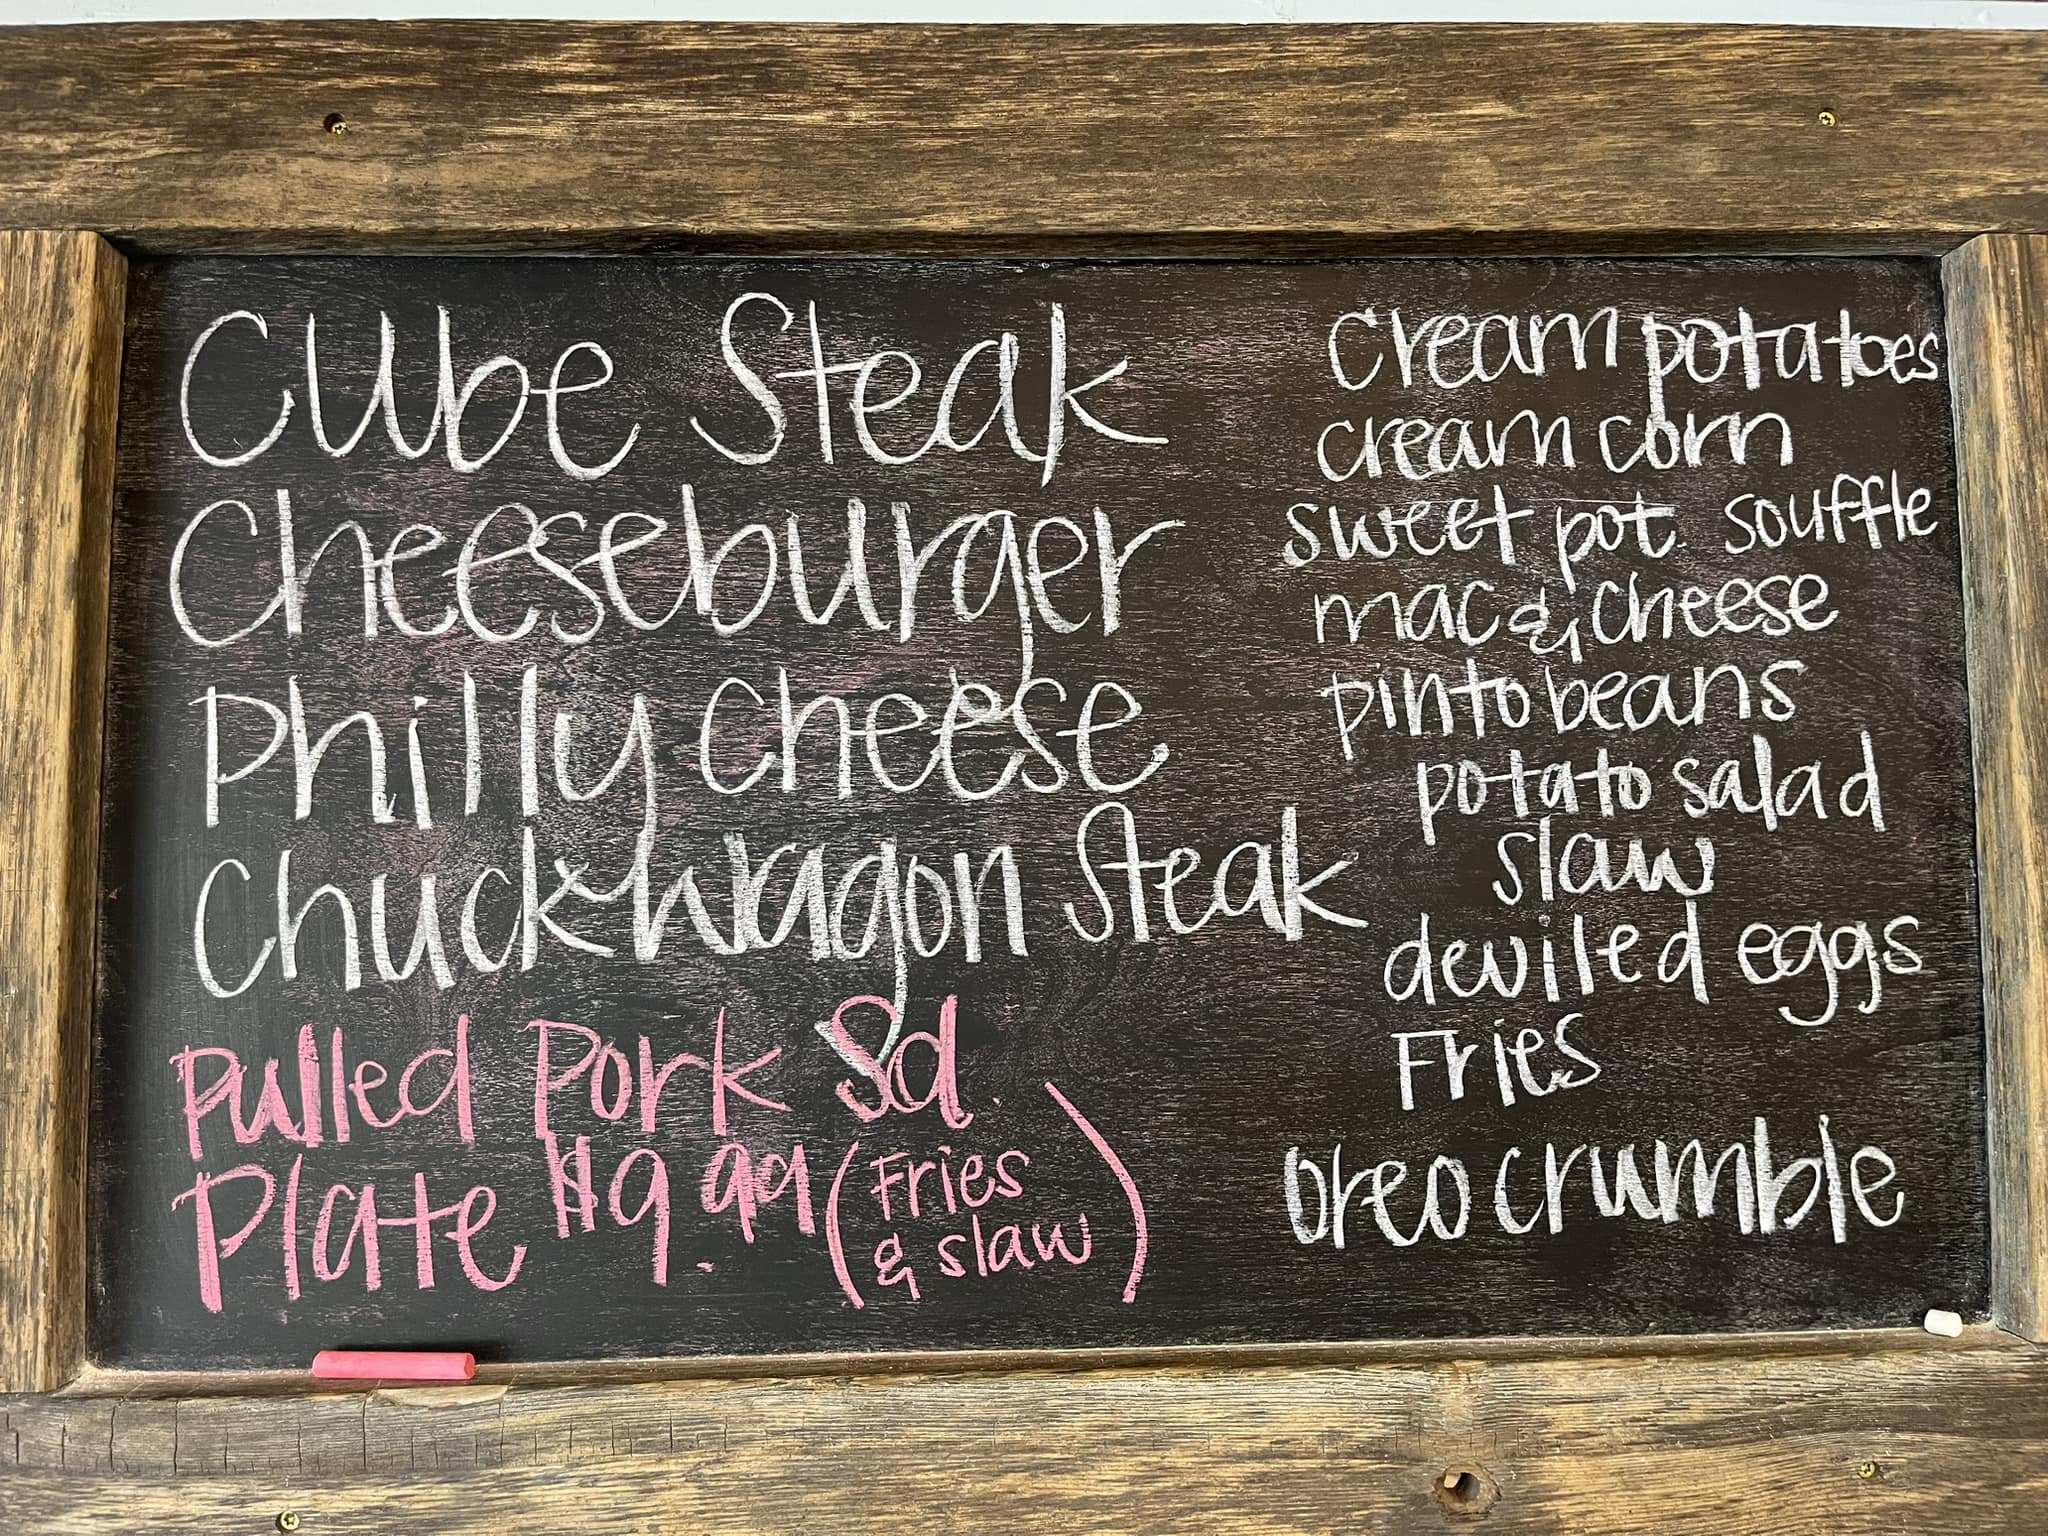 Cube Steak
Cheeseburger
Philly Cheese
Chuckwagon Steak
Pulled Pork Sd.
Plate $9.99 (Fries
& slaw)
cream potatoes
cream corn
sweet pot. souffle
mac & cheese
pinto beans
potato salad
slaw
deviled eggs
Fries
Oreo crumble